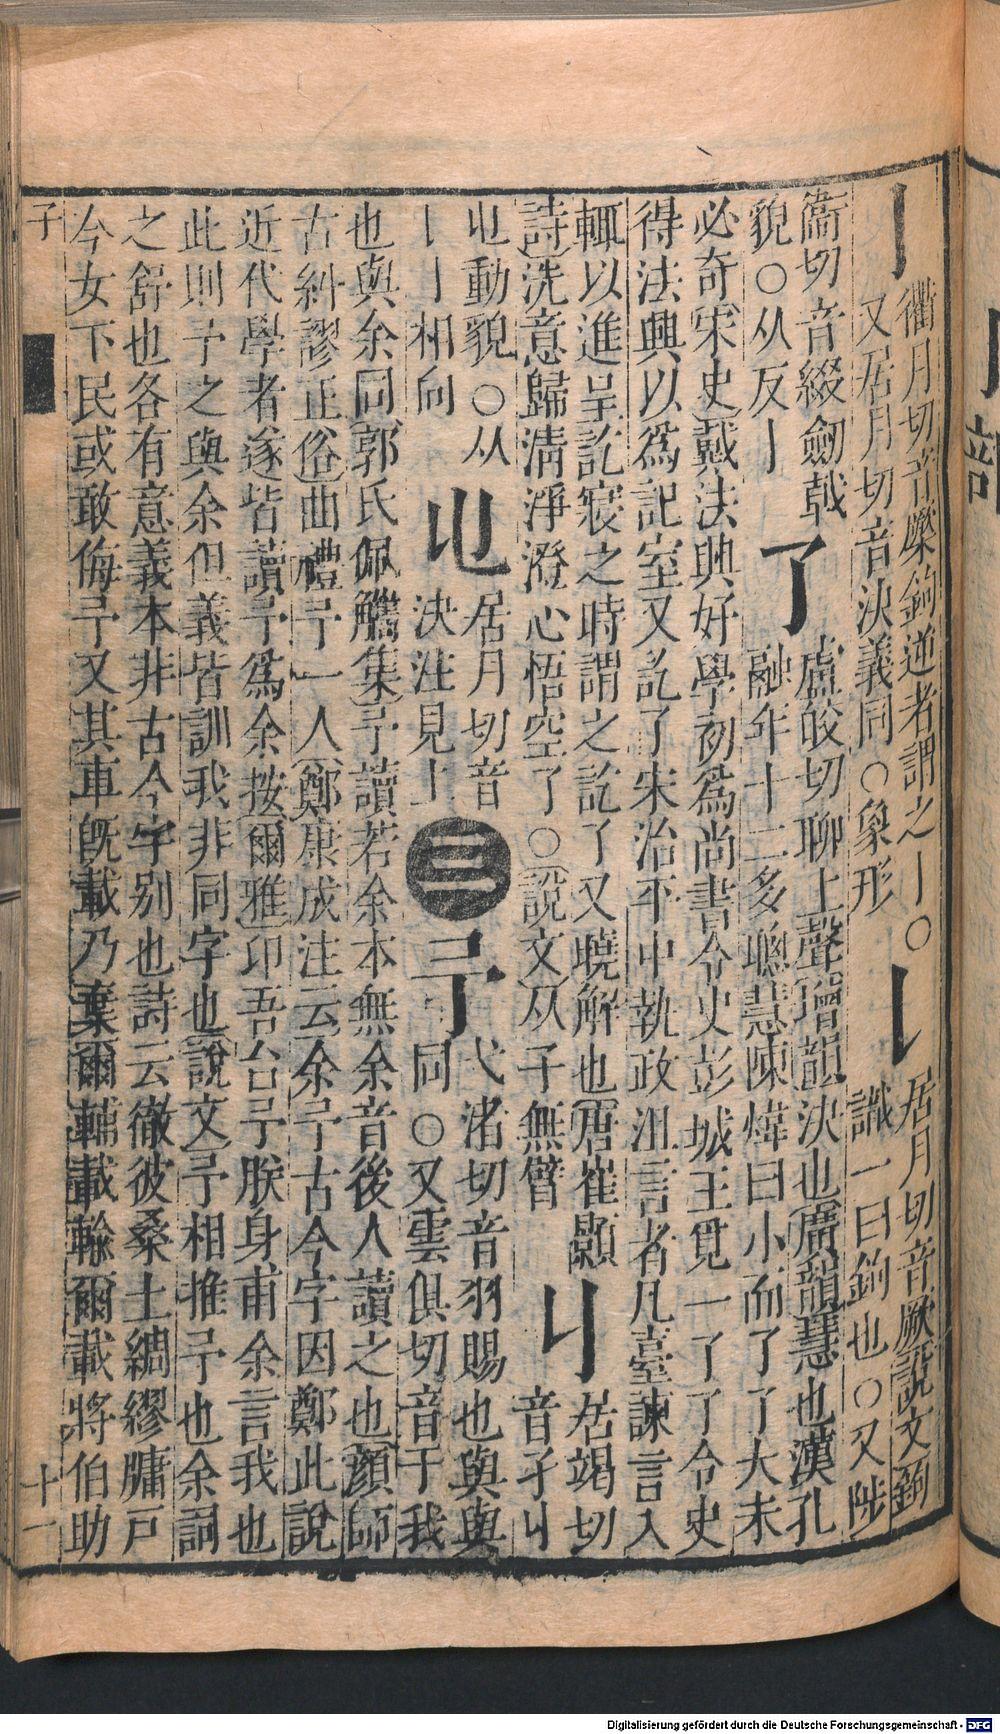 亅
衢月切音橜鉤逆者謂之亅○
又居月切音決義同○象形
𠄌
居月切音厥說文鉤
識一曰鉤也○又陟
衞切音綴劒㦸
貌○从反亅
了
盧皎切聊上聲增韻決也廣韻慧也漢孔
融年十二多聰慧陳煒曰小而了了大未
必奇宋史戴法興好學初爲尚書令史彭城王覓一了了令史
得法興以爲記室又訖了宋治平中執政沮言者凡臺諫言入
輒以進呈訖寢之時謂之訖了又曉解也唐崔顥
詩洗意歸清淨澄心悟空了○說文从子無臂
居竭切
音孑
動貌○从
亅亅相向
居月切音
決注見亅
三
予
弋渚切音羽賜也與與
同○又雲俱切音于我
也與余同郭氏佩觿集予讀若余本無余音後人讀之也顏師
古糾謬正俗曲禮予一人鄭康成注云余予古今字因鄭此說
近代學者遂皆讀予爲余按爾雅卬吾台予朕身甫余言我也
此則予之與余但義皆訓我非同字也說文予相推予也余詞
之舒也各有意義本非古今字別也詩云徹彼桑土綢繆牖戶
今女下民或敢侮予又其車旣載乃棄爾輔載輸爾載將伯助
子
十一
部
Digitalisierung gefördert durch die Deutsche Forschungsgemeinschaft - DFG